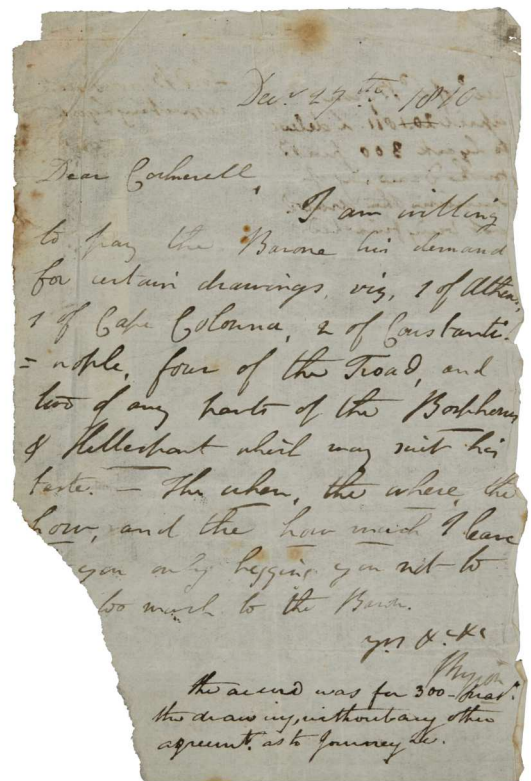 Decr 27th 1810
Dear Cockerell,
I am willing
to pay the Barone his demand
for certain drawings, viz, 1 of Athens,
1 of Cape Colonna, 2 of Constanti
= nople, four of the Troad, and
two of any parts of the Bosphorus
& Hellespont which may suit his
taste. — The when, the where, the
how, and the how much I leave
you only begging you not to
too much to the Baron.
yrs &c &c
Byron
the accord was for 300
the drawings, without any other
agreemt. as to Journey &c.
300